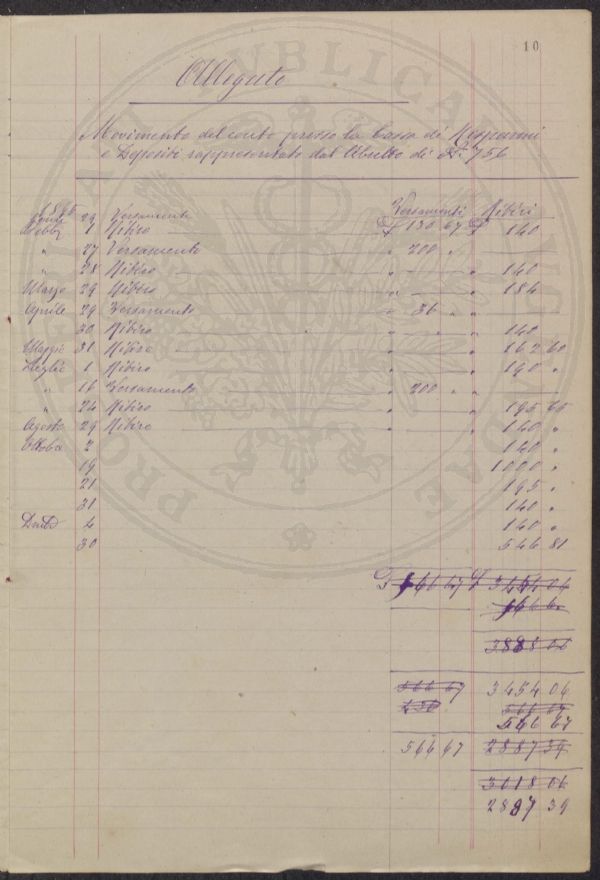 10
Allegato
Movimento del conto presso la Cassa di Risparmi
e Depositi rappresentato dal libretto di N. 756
Versamenti Ritiri
29 Versamento £ 130 67 £
Febb. 1 Ritiro " 140
" 27 Versamento " 200 "
" 28 Ritiro " " 140
Marzo 29 Ritiro " " 184
Aprile 29 Versamento " 36 " "
30 Ritiro " " 140
Maggio 31 Ritiro " " 162 60
Luglio 1 Ritiro " " 190 "
" 16 Versamento " 200 " "
" 24 Ritiro 195 65
Agosto 29 Ritiro 140 "
Ottobre 2 140 "
19 1000 "
21 195 "
31 140 "
4 140 "
30 546 81
566 67 3454 06
3888 06
566 67 3454 06
566 67
566 67
566 67 2887 39
3018 06
2887 39
PROVIDENTIAE
PUBLICAE